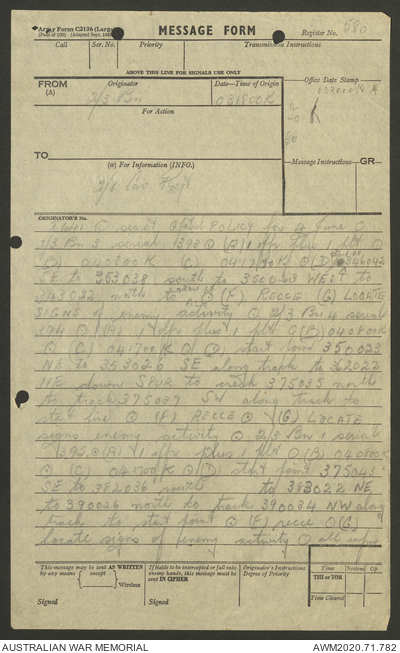 Army Form C2136 (Large)
(Pads of 100) (Adapted Sept. 194
MESSAGE FORM
Register No. 580
Call Ser. No. Priority Transmission Instructions
ABOVE THIS LINE FOR SIGNALS USE ONLY
FROM
(A)
Originator
2/3 Bn
Date—Time of Origin
031800K
Office Date Stamp
For Action
TO
(w) For Information (INFO.)
2/6 Cav Regt
Message Instructions GR
ORIGINATOR'S No.
O641 ⊙ secret ⊙ Patrol POLICY for 4 June ⊙
2/3 Bn 3 serial 393 ⊙ (A) 1 offr plus 1 plt ⊙
(B) 040800K (C) 041730K ⊙ (D) 346042
SE to 353038 south to 350023 WEST to
343022 north to ⊙ (F) RECCE (G) LOCATE
SIGNS of enemy activity ⊙ 2/3 Bn 4 serial
394 ⊙ (A) 1 offr plus 1 plt ⊙ (B) 040800K
⊙ (C) 041700K ⊙ (D) start point 350023
NE to 353026 SE along track to 362022
NE down SPUR to creek 375035 north
to track 375037 SW along track to
start line ⊙ (F) RECCE ⊙ (G) LOCATE
signs enemy activity ⊙ 2/3 Bn 1 serial
395 ⊙ (A) 1 offr plus 1 plt ⊙ (B) 040800K
⊙ (C) 041700K ⊙ (D) start point 375043
SE to 382036 south to 383022 NE
to 390026 north to track 390034 NW along
track to start point ⊙ (F) recce ⊙ (G)
locate signs of enemy activity ⊙ all infm
This message may be sent AS WRITTEN
by any means except Wireless
If liable to be intercepted or fall into
enemy hands, this message must be
sent IN CIPHER
Originator's Instructions
Degree of Priority
Time System Op.
THI or TOR
Time Cleared
Signed Signed
AUSTRALIAN WAR MEMORIAL AWM2020.71.782